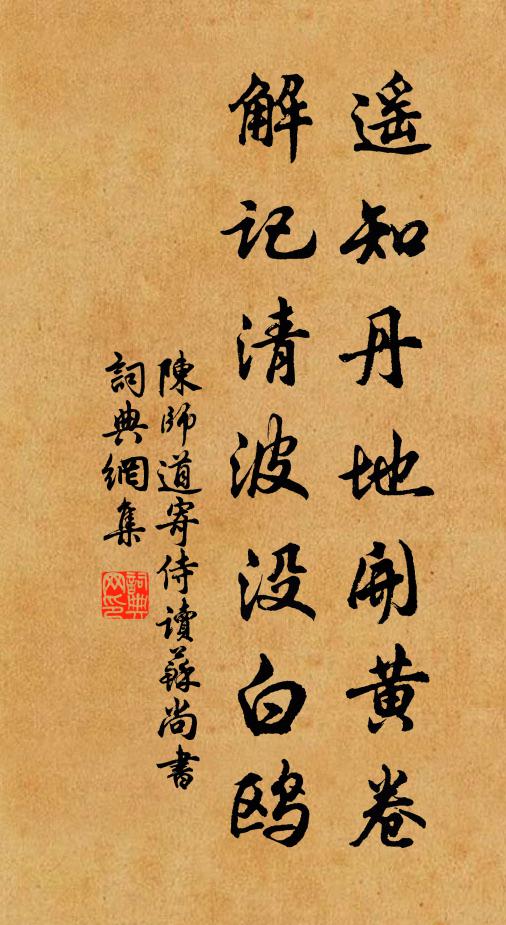 遥知丹地開黄卷
解记清波没白鸥
陳師道寄侍讀蘇尚書
詞典網集
詞典
网印